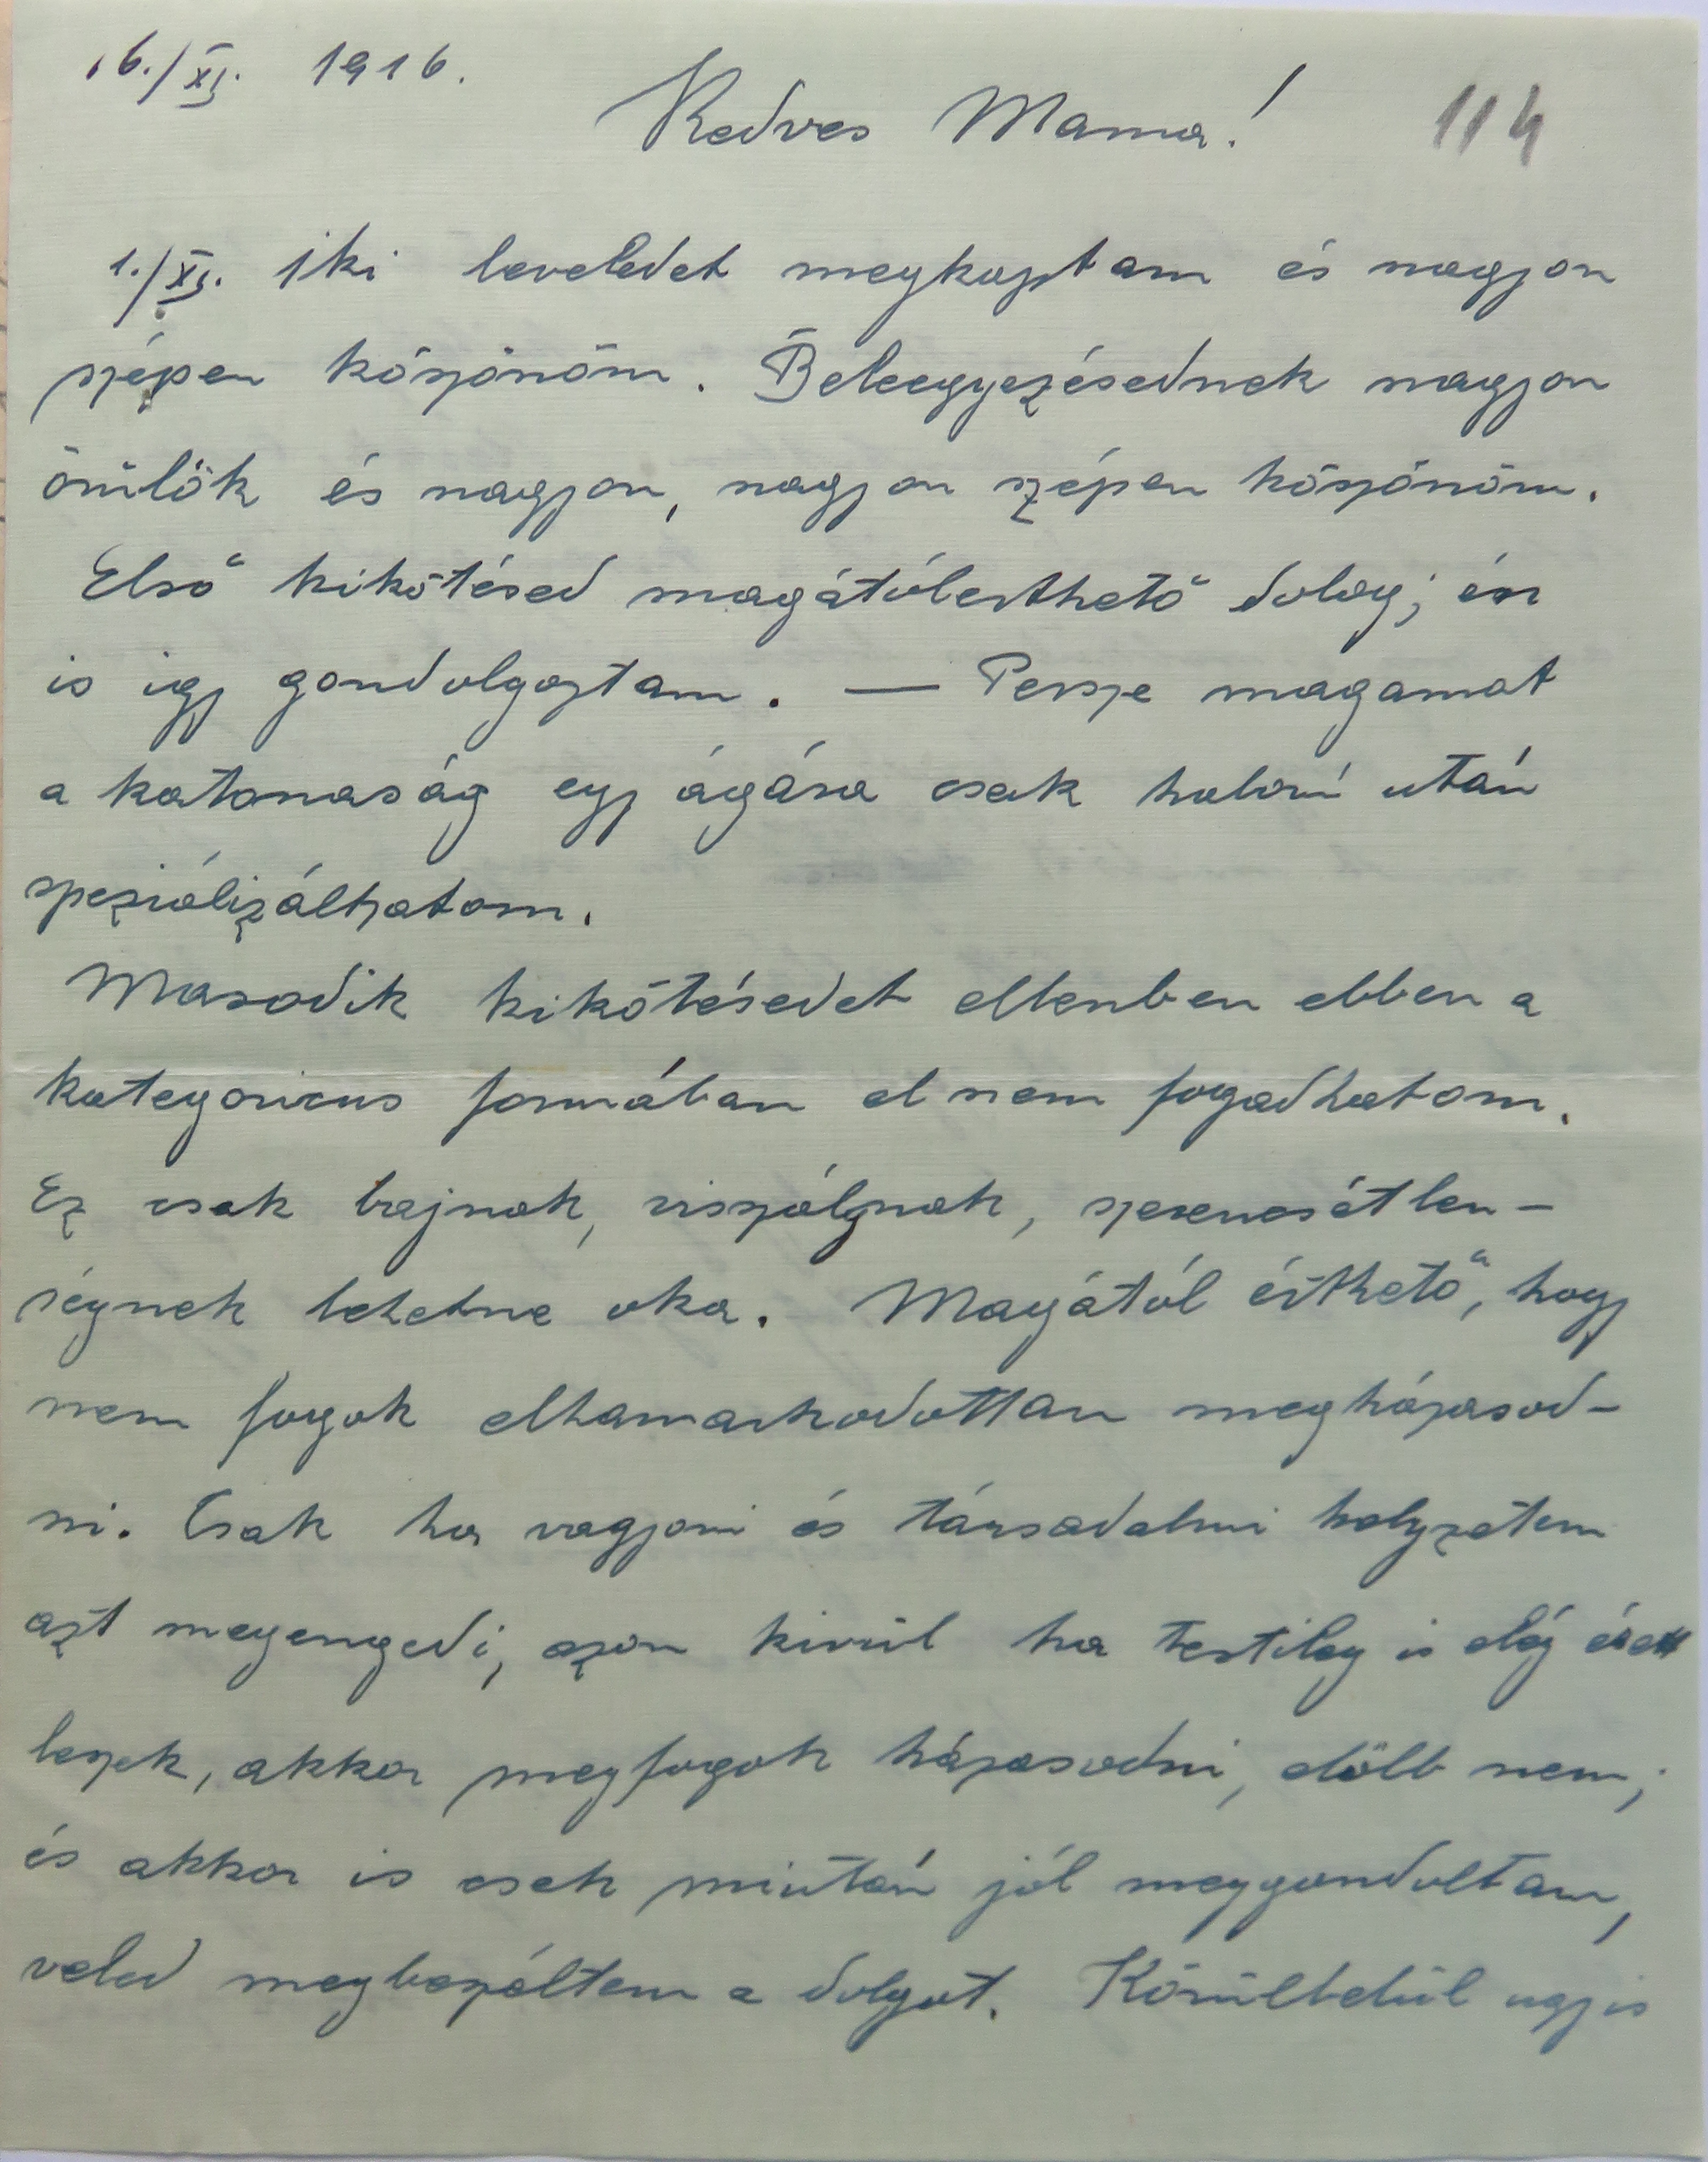 16./XI. 1916.
Kedves Mama! 114
1./XI. iki leveledet megkaptam és nagyon
szépen köszönöm. Beleegyezésednek nagyon
örülök és nagyon, nagyon szépen köszönöm.
Első kikötésed magátólérthető dolog; én
is igy gondolgoztam. — Persze magamat
a katonaság egy ágára csak háború után
speziálizálhatom.
Masodik kikötésedet ellenben ebben a
kategoricus formában el nem fogadhatom.
Ez csak bajnak, viszálynak, szerencsétlen-
ségnek lehetne oka. Magától érthető, hogy
nem fogok elhamarkodottan megházasod-
ni. Csak ha vagyoni és társadalmi helyzetem
azt megengedi, azon kivül ha testileg is elég érett
leszek, akkor megfogok házasodni, előbb nem;
és akkor is csak miután jól meggondoltam,
veled megbeszéltem a dolgot. Körülbelül ugyis